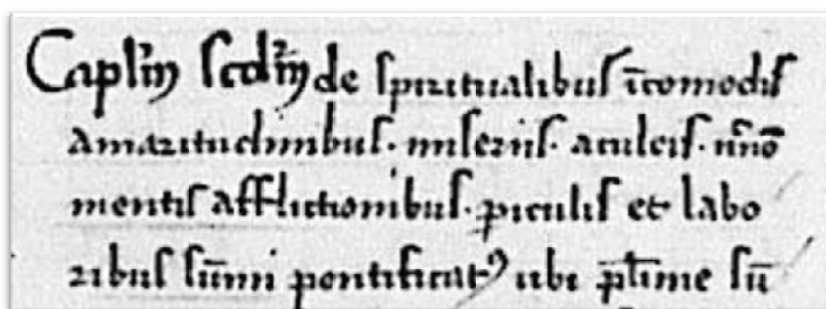 Caplm scdm de spiritualibus ĩcomodis
amaritudinibus. miseriis. aculeis. nño
mentis afflictionibus. piculis et labo
ribus sũmi pontificatꝰ ubi ptime sũ